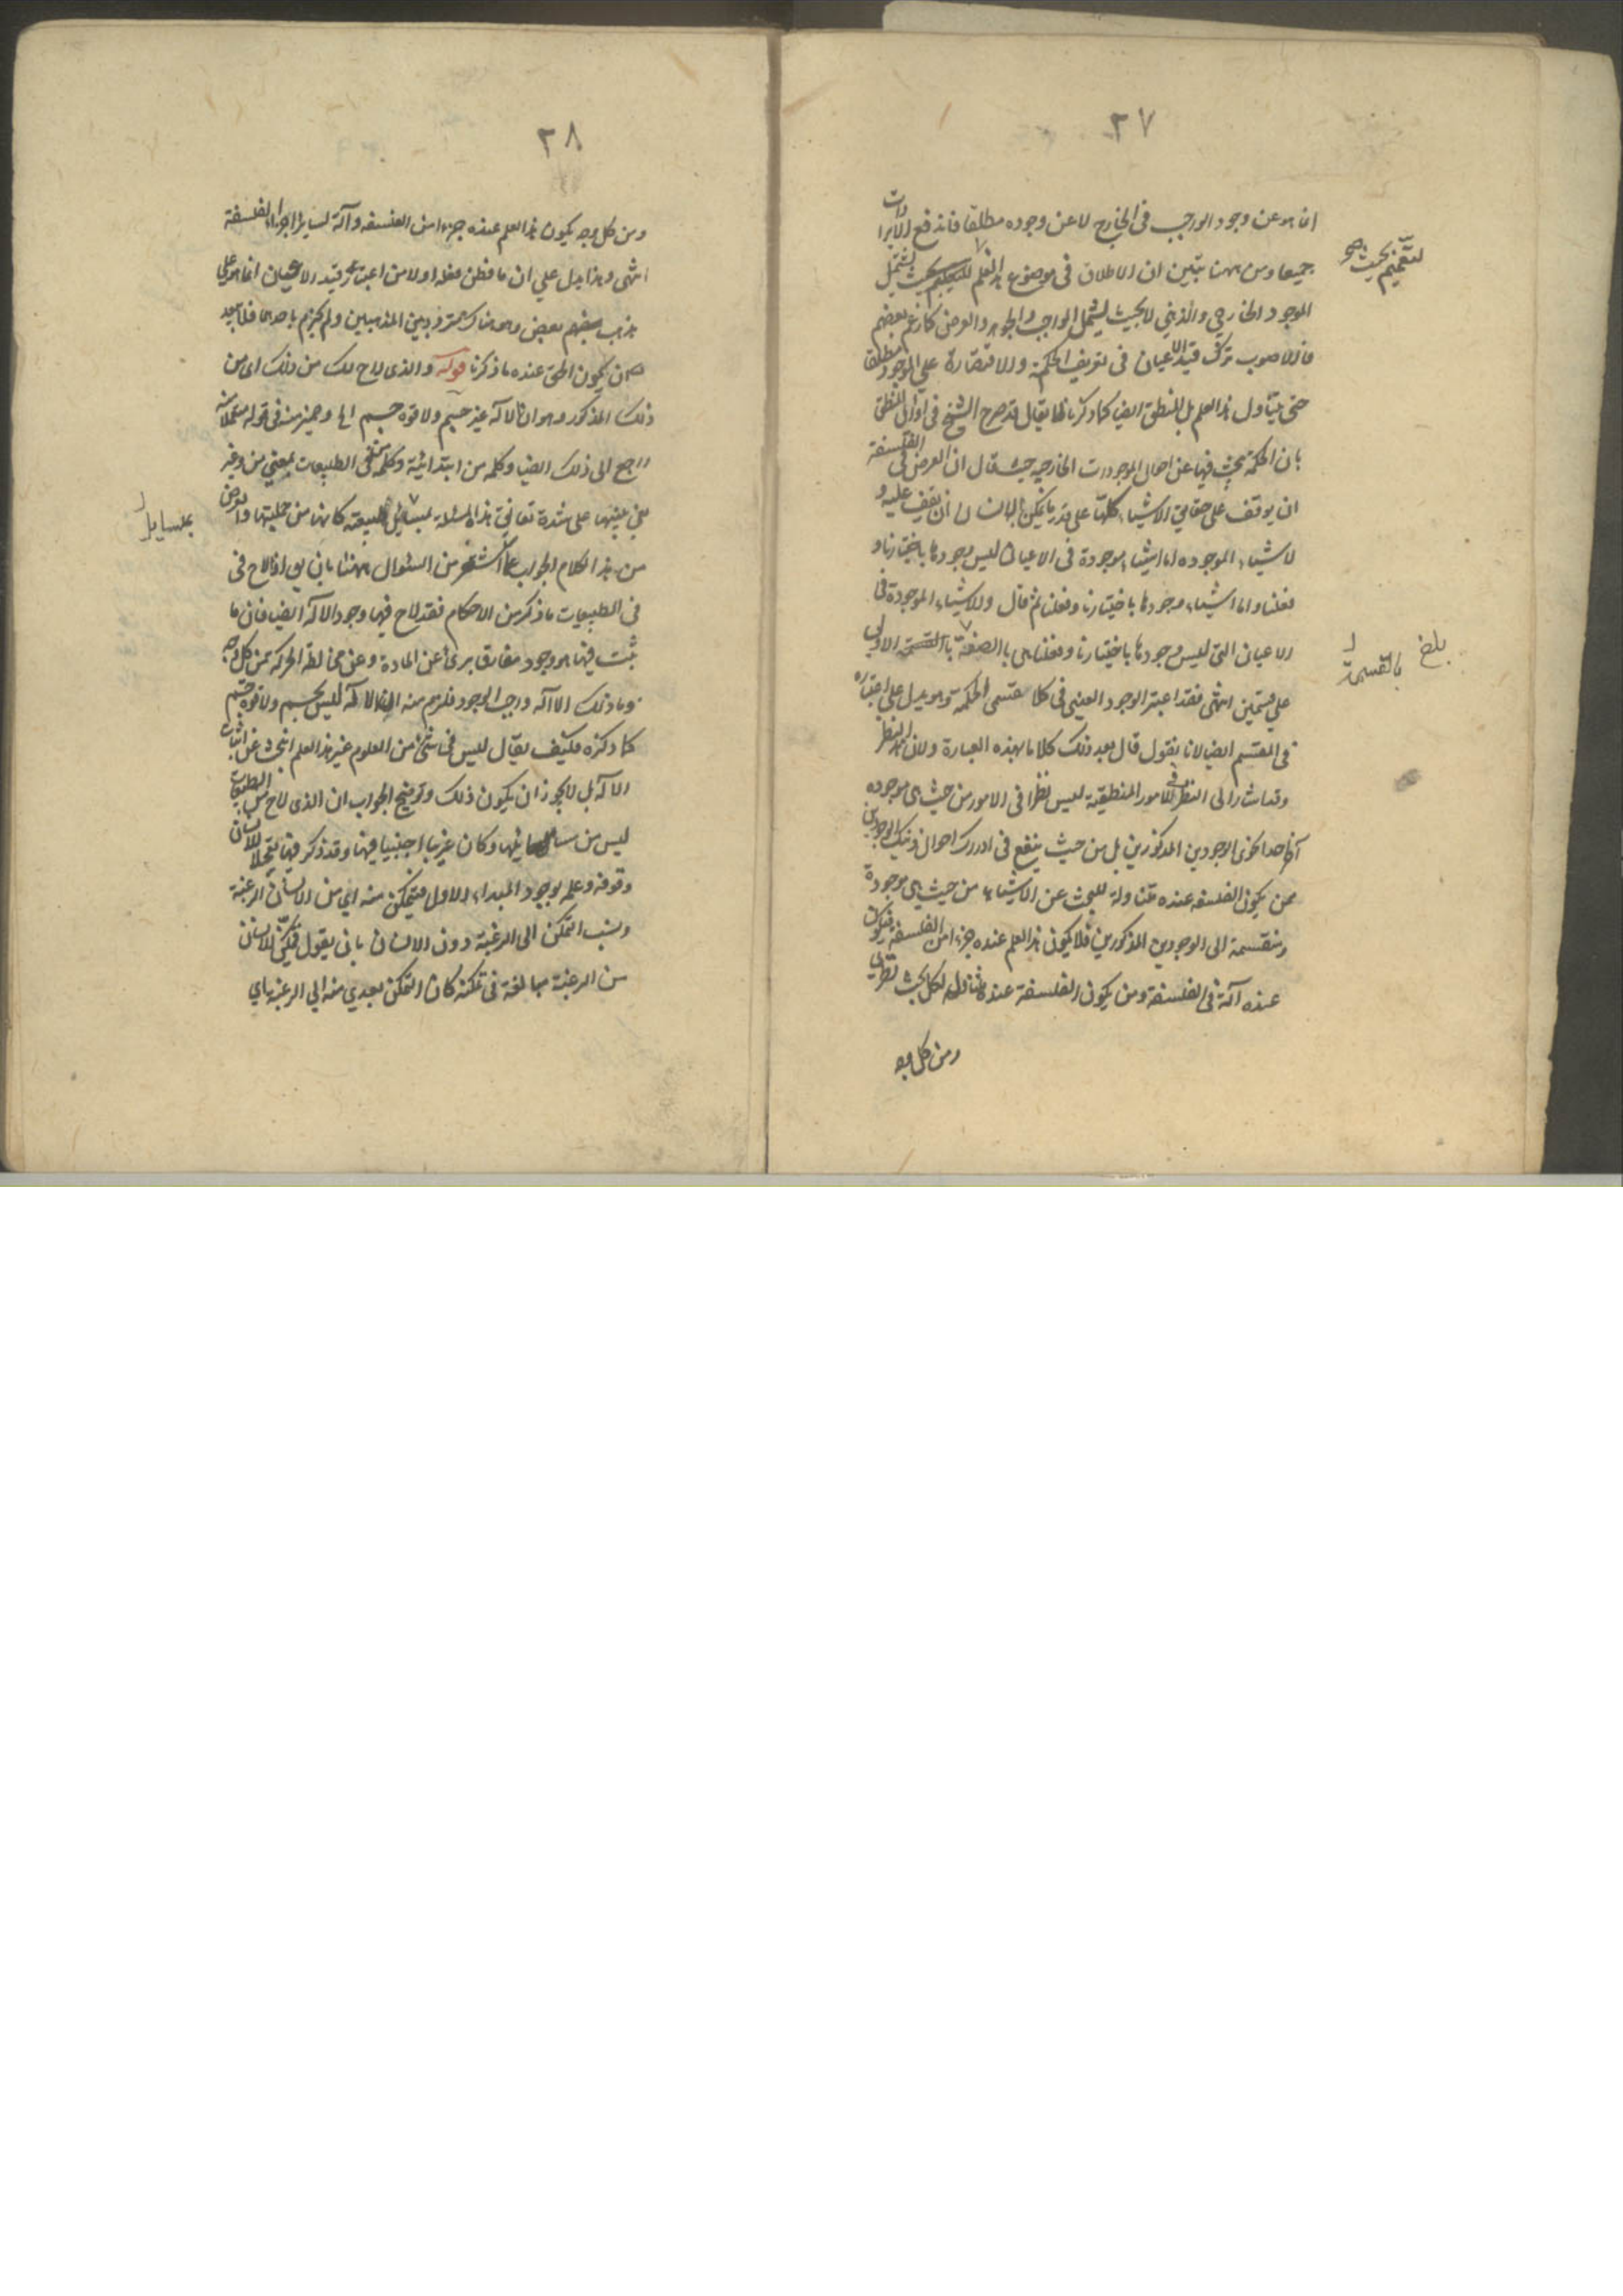 ٣٧
انما هو عن وجود الواجب فى الخارج لا عن وجوده مطلقا فاندفع الايرادات
جميعا ومن ههنا تبين ان الاطلاق فى موضوع هذا العلم للتعميم بحيث يشتمل
لتعميم بحيث صح
الموجود الخارجي والذهني لا بحيث يشمل الواجب والجوهر والعرض كما زعم بعضهم
فالاصوب ترك قيد الاعيان فى تعريف الحكمة والاقتصار على الموجود مطلقا
حتى يتناول هذا العلم بل المنطق ايضا كما ذكرنا لا يقال قد صرح الشيخ فى اوائل المنطق
بان الحكمة يبحث فيها عن احوال الموجودات الخارجيه حيث قال ان الغرض فى الفلسفة
ان يوقف على حقايق الاشياء كلها على قدر ما يمكن الانسان ان يقف عليه و
الاشياء الموجوده اما اشياء موجودة فى الاعيان ليس وجودها باختيارنا و
فعلنا واما اشياء وجودها باختيارنا وفعلنا ثم قال والاشياء الموجودة فى
الاعيان التى ليس وجودها باختيارنا وفعلنا هى بالصفة بالقسمة الاولى
بلغ
بالقسمة ل
على قسمين انتهى فقد اعتبر الوجود العينى فى كلا قسمى الحكمة وهو يدل على اعتباره
فى المقسم ايضا لانا نقول قال بعد ذلك كلاما بهذه العبارة ولان هذا النظر
وقد اشار الى النظر فى الامور المنطقية ليس نظرا فى الامور من حيث هى موجوده
احد نحوى الوجودين المذكورين بل من حيث ينفع فى ادراك احوال ذينك الوجودين
فمن يكون الفلسفه عنده متناولة للبحث عن الاشياء من حيث هى موجودة
ومنقسمة الى الوجودين المذكورين فلا يكون هذا العلم عنده جزءا من الفلسفة فيكون
عنده آلة فى الفلسفة ومن يكون الفلسفة عنده متناولة لكل بحث نظرى
ومن كل وجه
٣٨
ومن كل وجه يكون هذا العلم عنده جزءا من الفلسفه وآلة لساير اجزاء الفلسفة
انتهى وهذا يدل على ان ما نقل عنه اولا من اعتبار قيد الاعيان انما هو على
مذهب بعضهم وهو هناك متردد بين المذهبين ولم يجزم باحدهما فلا يبعد
ان يكون الحق عنده ما ذكرنا قوله والذى لاح لك من ذلك اى من
ذلك المذكور وهو ان الاله غير جسم ولا قوة جسم الخ وضمير منه فى قوله مستعملا منه
راجع الى ذلك ايضا وكلمه من ابتدائية وكلمة فى الطبيعات بمعنى من وغير
من هذا الكلام الجواب عما استشعر من السئوال ههنا بان يق اذا لاح فى
بمسايل ل
فى الطبيعات ما ذكر من الاحكام فقد لاح فيها وجود الاله ايضا فان ما
ثبت فيها هو وجود مفارق برئ عن المادة وعن مخالطة الحركة من كل وجه
وما ذلك الا اله واجب الوجود فلزم منه ان الاله ليس بجسم ولا قوة جسم
كما ذكره فكيف يقال ليس فى شئ من العلوم غير هذا العلم البحث عن اثبات
الاله بل لا يجوز ان يكون ذلك وتوضيح الجواب ان الذى لاح من الطبيعيات
ليس من مسايلها وكان غريبا اجنبيا فيها وقد ذكر فيها تعجلا للانسان
وقوفه وعلمه بوجود المبداء الاول فيتمكن منه اى من الانسان الرغبة
ونسب التمكن الى الرغبة دون الانسان بان يقول فيتمكن الانسان
من الرغبة مبالغة فى تمكنه كان التمكن تعدى منه الى الرغبة اى